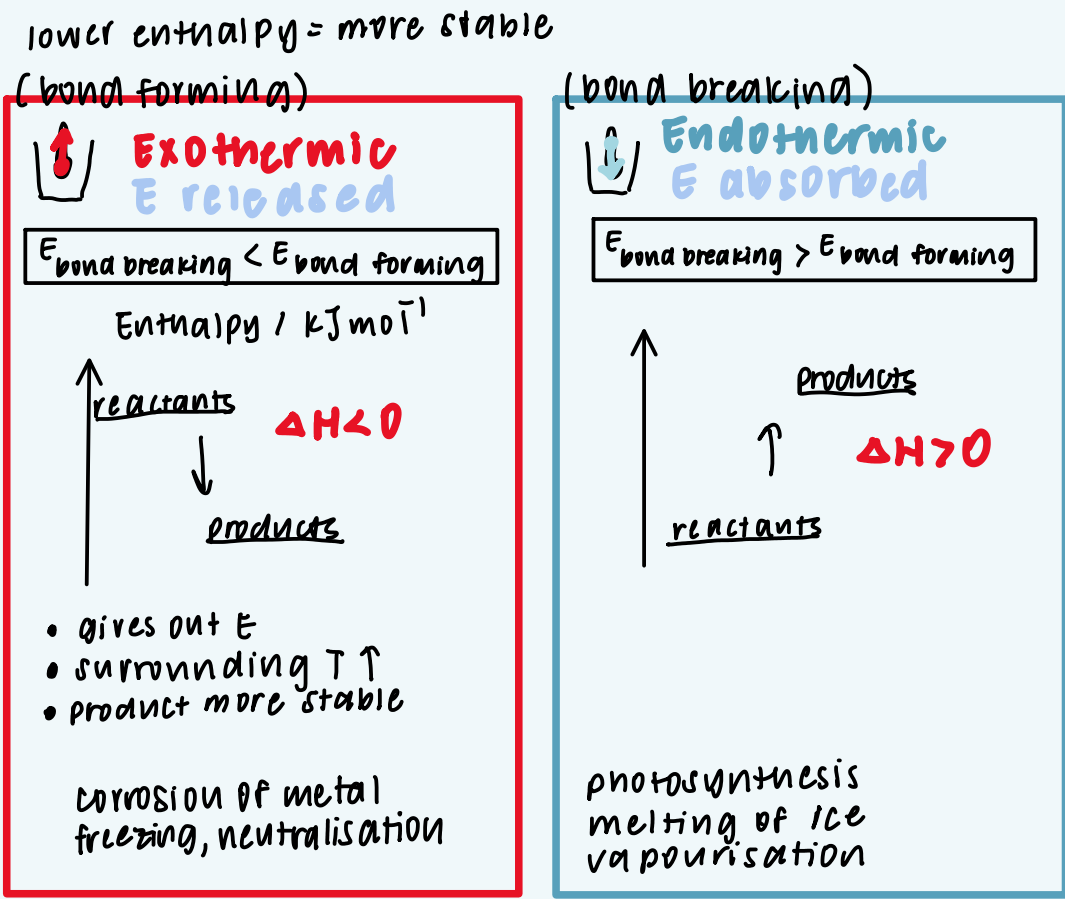 lower enthalpy = more stable
(bond forming)
Exothermic
E released
E bond breaking < E bond forming
Enthalpy / kJmol⁻¹
reactants
ΔH<0
products
• gives out E
• surrounding T ↑
• product more stable
corrosion of metal
freezing, neutralisation
(bond breaking)
Endothermic
E absorbed
E bond breaking > E bond forming
products
ΔH>0
reactants
photosynthesis
melting of ice
vapourisation